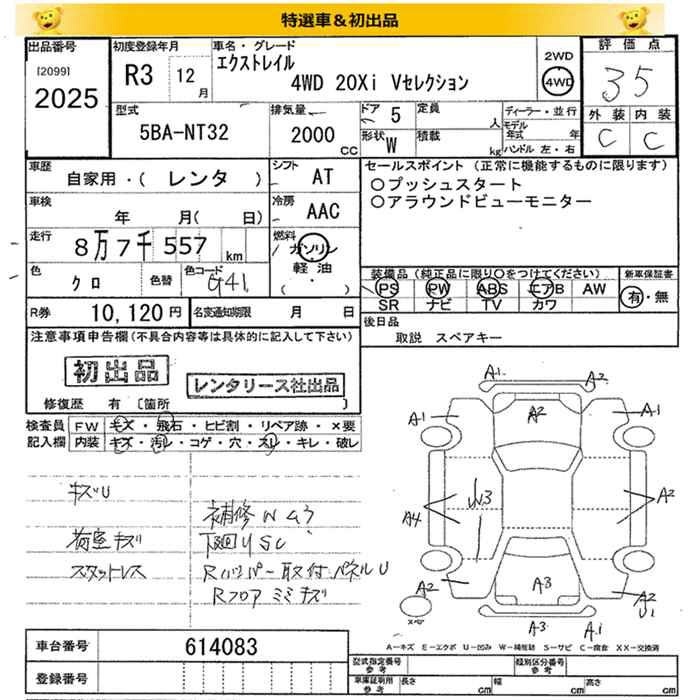 特選車＆初出品
出品番号
[2099]
2025
初度登録年月
R3 12月
車名・グレード
エクストレイル
4WD 20Xi Vセレクション
2WD
4WD
評価点
3.5
外装 内装
C C
型式
5BA-NT32
排気量
2000 CC
ドア 5
形状 W
定員 人
積載 kg
ディーラー・並行
モデル年式 年
ハンドル 左・右
車歴
自家用・( レンタ )
シフト
AT
車検
年 月( 日)
冷房
AAC
走行
8万7千557 km
燃料
ガソリン
軽油
・
色
クロ
色替
色コード
G41
R券 10,120円
名変通知期限 月 日
セールスポイント (正常に機能するものに限ります)
○プッシュスタート
○アラウンドビューモニター
装備品 (純正品に限り○をつけてください)
PS PW ABS エアB AW
SR ナビ TV カワ
新車保証書
有・無
後日品
取説 スペアキー
注意事項申告欄 (不具合内容等は具体的に記入して下さい)
初出品
レンタリース社出品
修復歴 有 [箇所
検査員記入欄
FW キズ・飛石・ヒビ割・リペア跡・×要
内装 キズ・汚レ・コゲ・穴・スレ・キレ・破レ
キズU
荷室キズ
スタットレス
補修W
下回りSC
Rバンパー取付パネルU
Rフロアミミキズ
A1 A2
A1 A2 A1
A4 W3 A2
A2 A3 A2
U1
スペア A3 A1
A－キズ E－エクボ U－凹み W－補修跡 S－サビ C－腐食 XX－交換済
車台番号 614083
登録番号
型式指定番号 参考
類別区分番号 参考
車庫証明用 参考 長さ cm 幅 cm 高さ cm